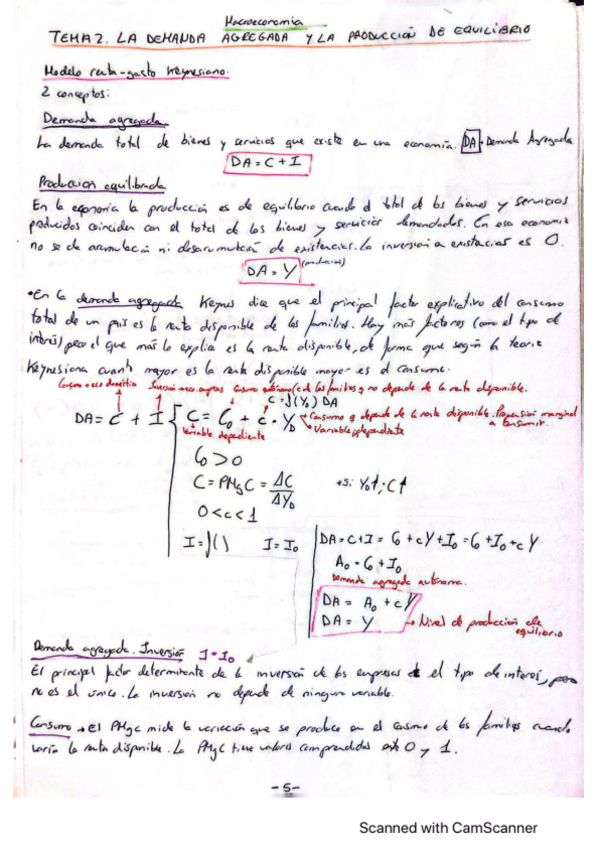 Macroeconomía
TEMA 2. LA DEMANDA AGREGADA Y LA PRODUCCIÓN DE EQUILIBRIO
Modelo renta-gasto Keynesiano.
2 conceptos:
Demanda agregada
La demanda total de bienes y servicios que existe en una economía. DA = Demanda Agregada
DA = C + I
Produccion equilibrada
En la economia la producción es de equilibrio cuando el total de los bienes y servicios
producidos coinciden con el total de los bienes y servicios demandados. En esa economia
no se da acumulación ni desacumulación de existencias. La inversion a existencias es 0.
DA = Y (produccion)
• En la demanda agregada Keynes dice que el principal factor explicativo del consumo
total de un pais es la renta disponible de las familias. Hay más factores (como el tipo de
interés) pero el que más lo explica es la renta disponible, de forma que según la teoria
Keynesiana cuanto mayor es la renta disponible mayor es el consumo.
Consumo autónomo (C de las familias y no depende de la renta disponible.
C = f(YD) DA
DA = C + I { C = C0 + c · YD
Consumo q depende de la renta disponible. Propensión marginal a consumir.
Variable dependiente
Variable independiente
C0 > 0
C = PMgC = ΔC / ΔYD
+si YD↑; C↑
0 < c < 1
I = f( ) I = I0
DA = C + I = C0 + cY + I0 = C0 + I0 + cY
A0 = C0 + I0
Demanda agregada autónoma.
DA = A0 + cY
DA = Y → Nivel de producción de equilibrio
Demanda agregada. Inversión I = I0
El principal factor determinante de la inversión de las empresas es el tipo de interés, pero
no es el único. La inversión no depende de ninguna variable.
Consumo → El PMgC mide la variación que se produce en el consumo de las familias cuando
varía la renta disponible. La PMgC tiene valores comprendidos entre 0 y 1.
-5-
Scanned with CamScanner